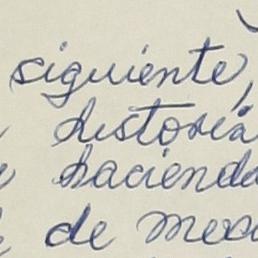 siguiente,
historia
hacienda
de mex